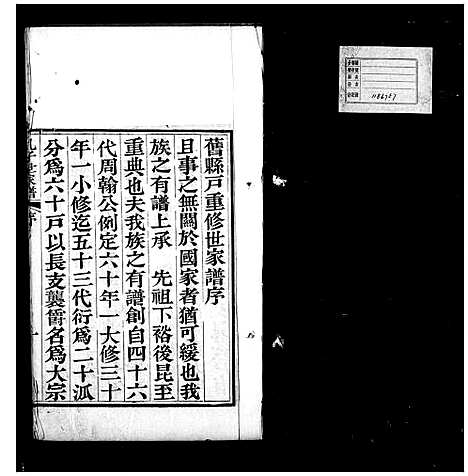 舊縣戸重修世家譜序
且事之無關於國家者猶可緩也我
族之有譜上承　先祖下裕後昆至
重典也夫我族之有譜創自四十六
代周翰公例定六十年一大修三十
年一小修迄五十三代衍為二十派
分為六十戸以長支襲爵名為大宗